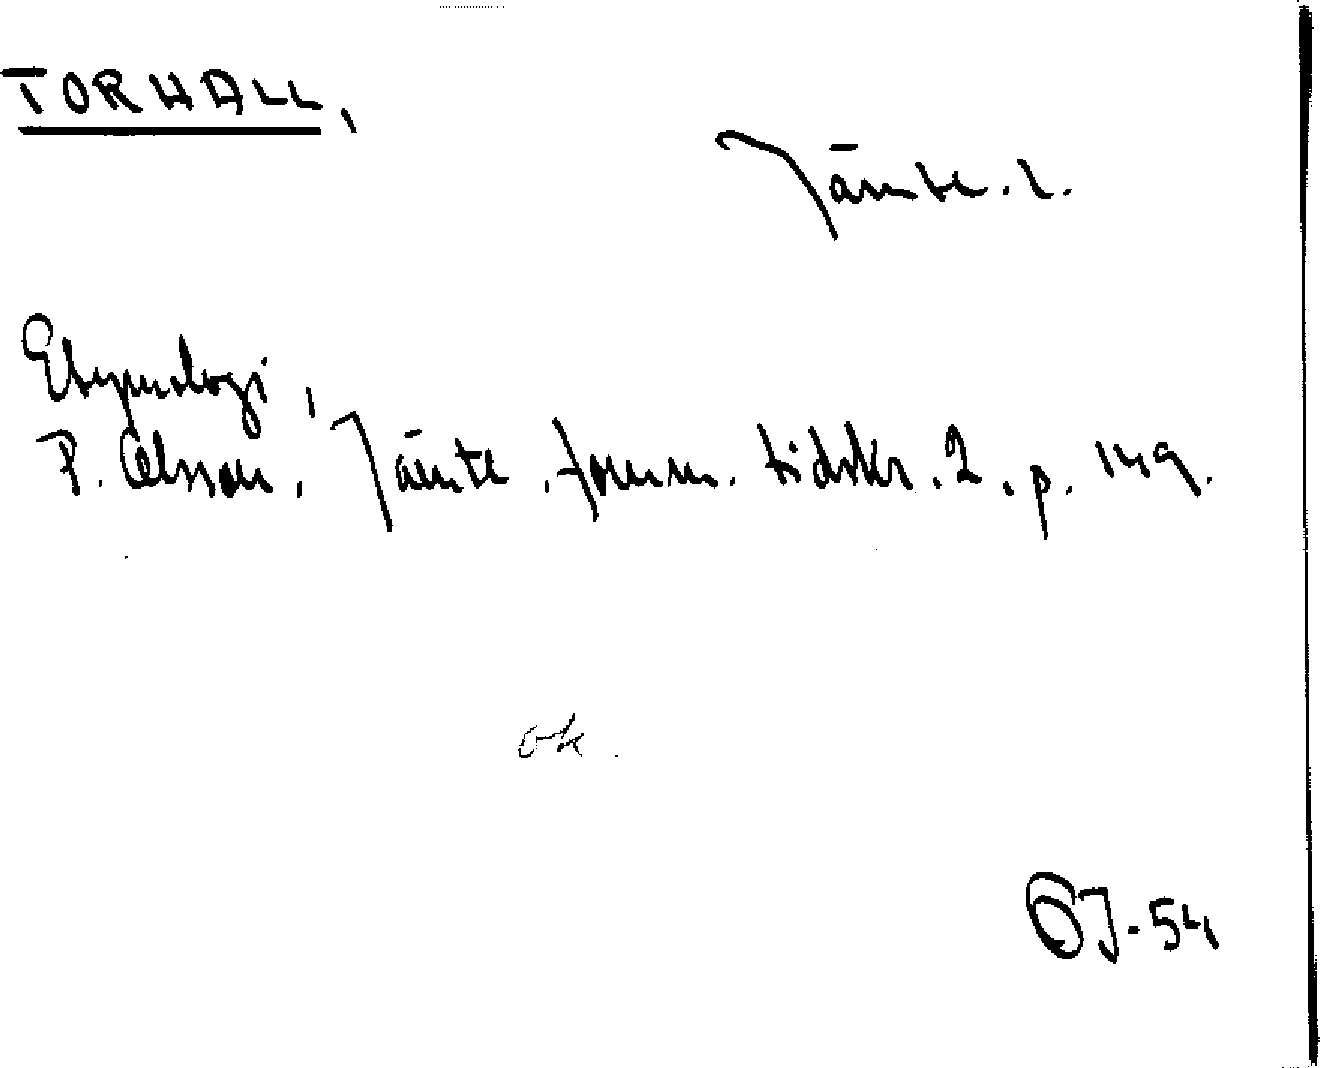 TORHALL,
Jämtl. l.
Etymologi,
P. Olsson, Jämtl. fornm. tidskr. 2, p. 149.
ok.
OJ-54